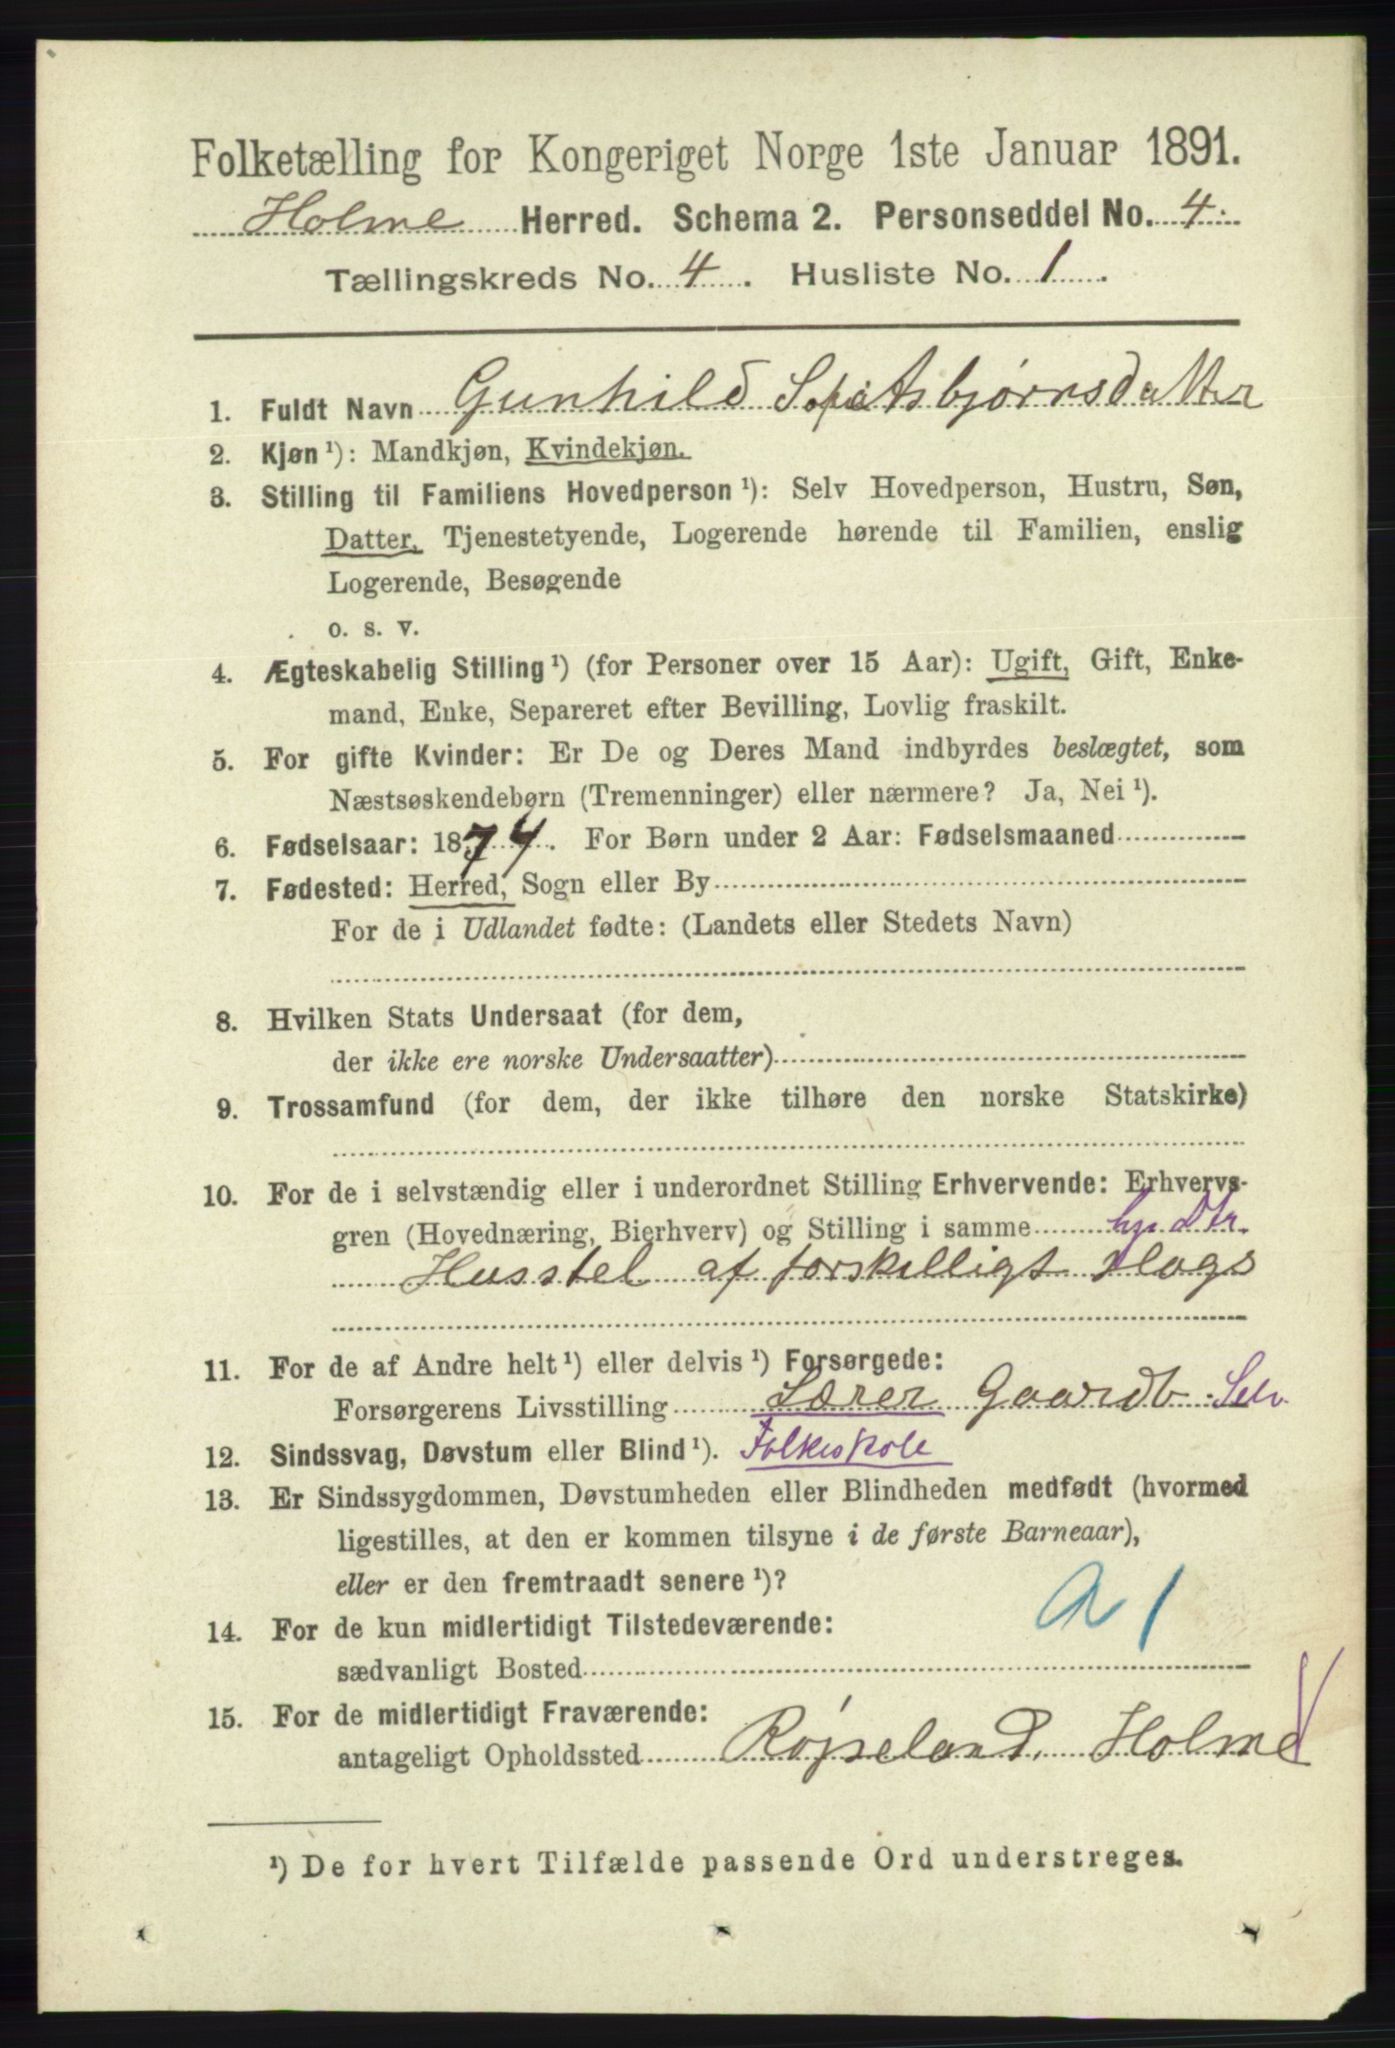 Folketælling for Kongeriget Norge 1ste Januar 1891.
Holme Herred. Schema 2. Personseddel No. 4.
Tællingskreds No. 4. Husliste No. 1.
1. Fuldt Navn Gunhild Sofie Asbjørnsdatter
2. Kjøn ¹): Mandkjøn, Kvindekjøn.
3. Stilling til Familiens Hovedperson ¹): Selv Hovedperson, Hustru, Søn,
Datter, Tjenestetyende, Logerende hørende til Familien, enslig
Logerende, Besøgende
o. s. v.
4. Ægteskabelig Stilling ¹) (for Personer over 15 Aar): Ugift, Gift, Enke-
mand, Enke, Separeret efter Bevilling, Lovlig fraskilt.
5. For gifte Kvinder: Er De og Deres Mand indbyrdes beslægtet, som
Næstsøskendebørn (Tremenninger) eller nærmere? Ja, Nei ¹).
6. Fødselsaar: 1874. For Børn under 2 Aar: Fødselsmaaned
7. Fødested: Herred, Sogn eller By
For de i Udlandet fødte: (Landets eller Stedets Navn)
8. Hvilken Stats Undersaat (for dem,
der ikke ere norske Undersaatter)
9. Trossamfund (for dem, der ikke tilhøre den norske Statskirke)
10. For de i selvstændig eller i underordnet Stilling Erhvervende: Erhvervs-
gren (Hovednæring, Bierhverv) og Stilling i samme hj. Dtr.
Husstel af forskelligt slags
11. For de af Andre helt ¹) eller delvis ¹) Forsørgede:
Forsørgerens Livsstilling Lærer Gaardb. Selv.
12. Sindssvag, Døvstum eller Blind ¹). Folkeskole
13. Er Sindssygdommen, Døvstumheden eller Blindheden medfødt (hvormed
ligestilles, at den er kommen tilsyne i de første Barneaar),
eller er den fremtraadt senere ¹)?
a 1
14. For de kun midlertidigt Tilstedeværende:
sædvanligt Bosted
15. For de midlertidigt Fraværende:
antageligt Opholdssted Røjseland, Holme
¹) De for hvert Tilfælde passende Ord understreges.